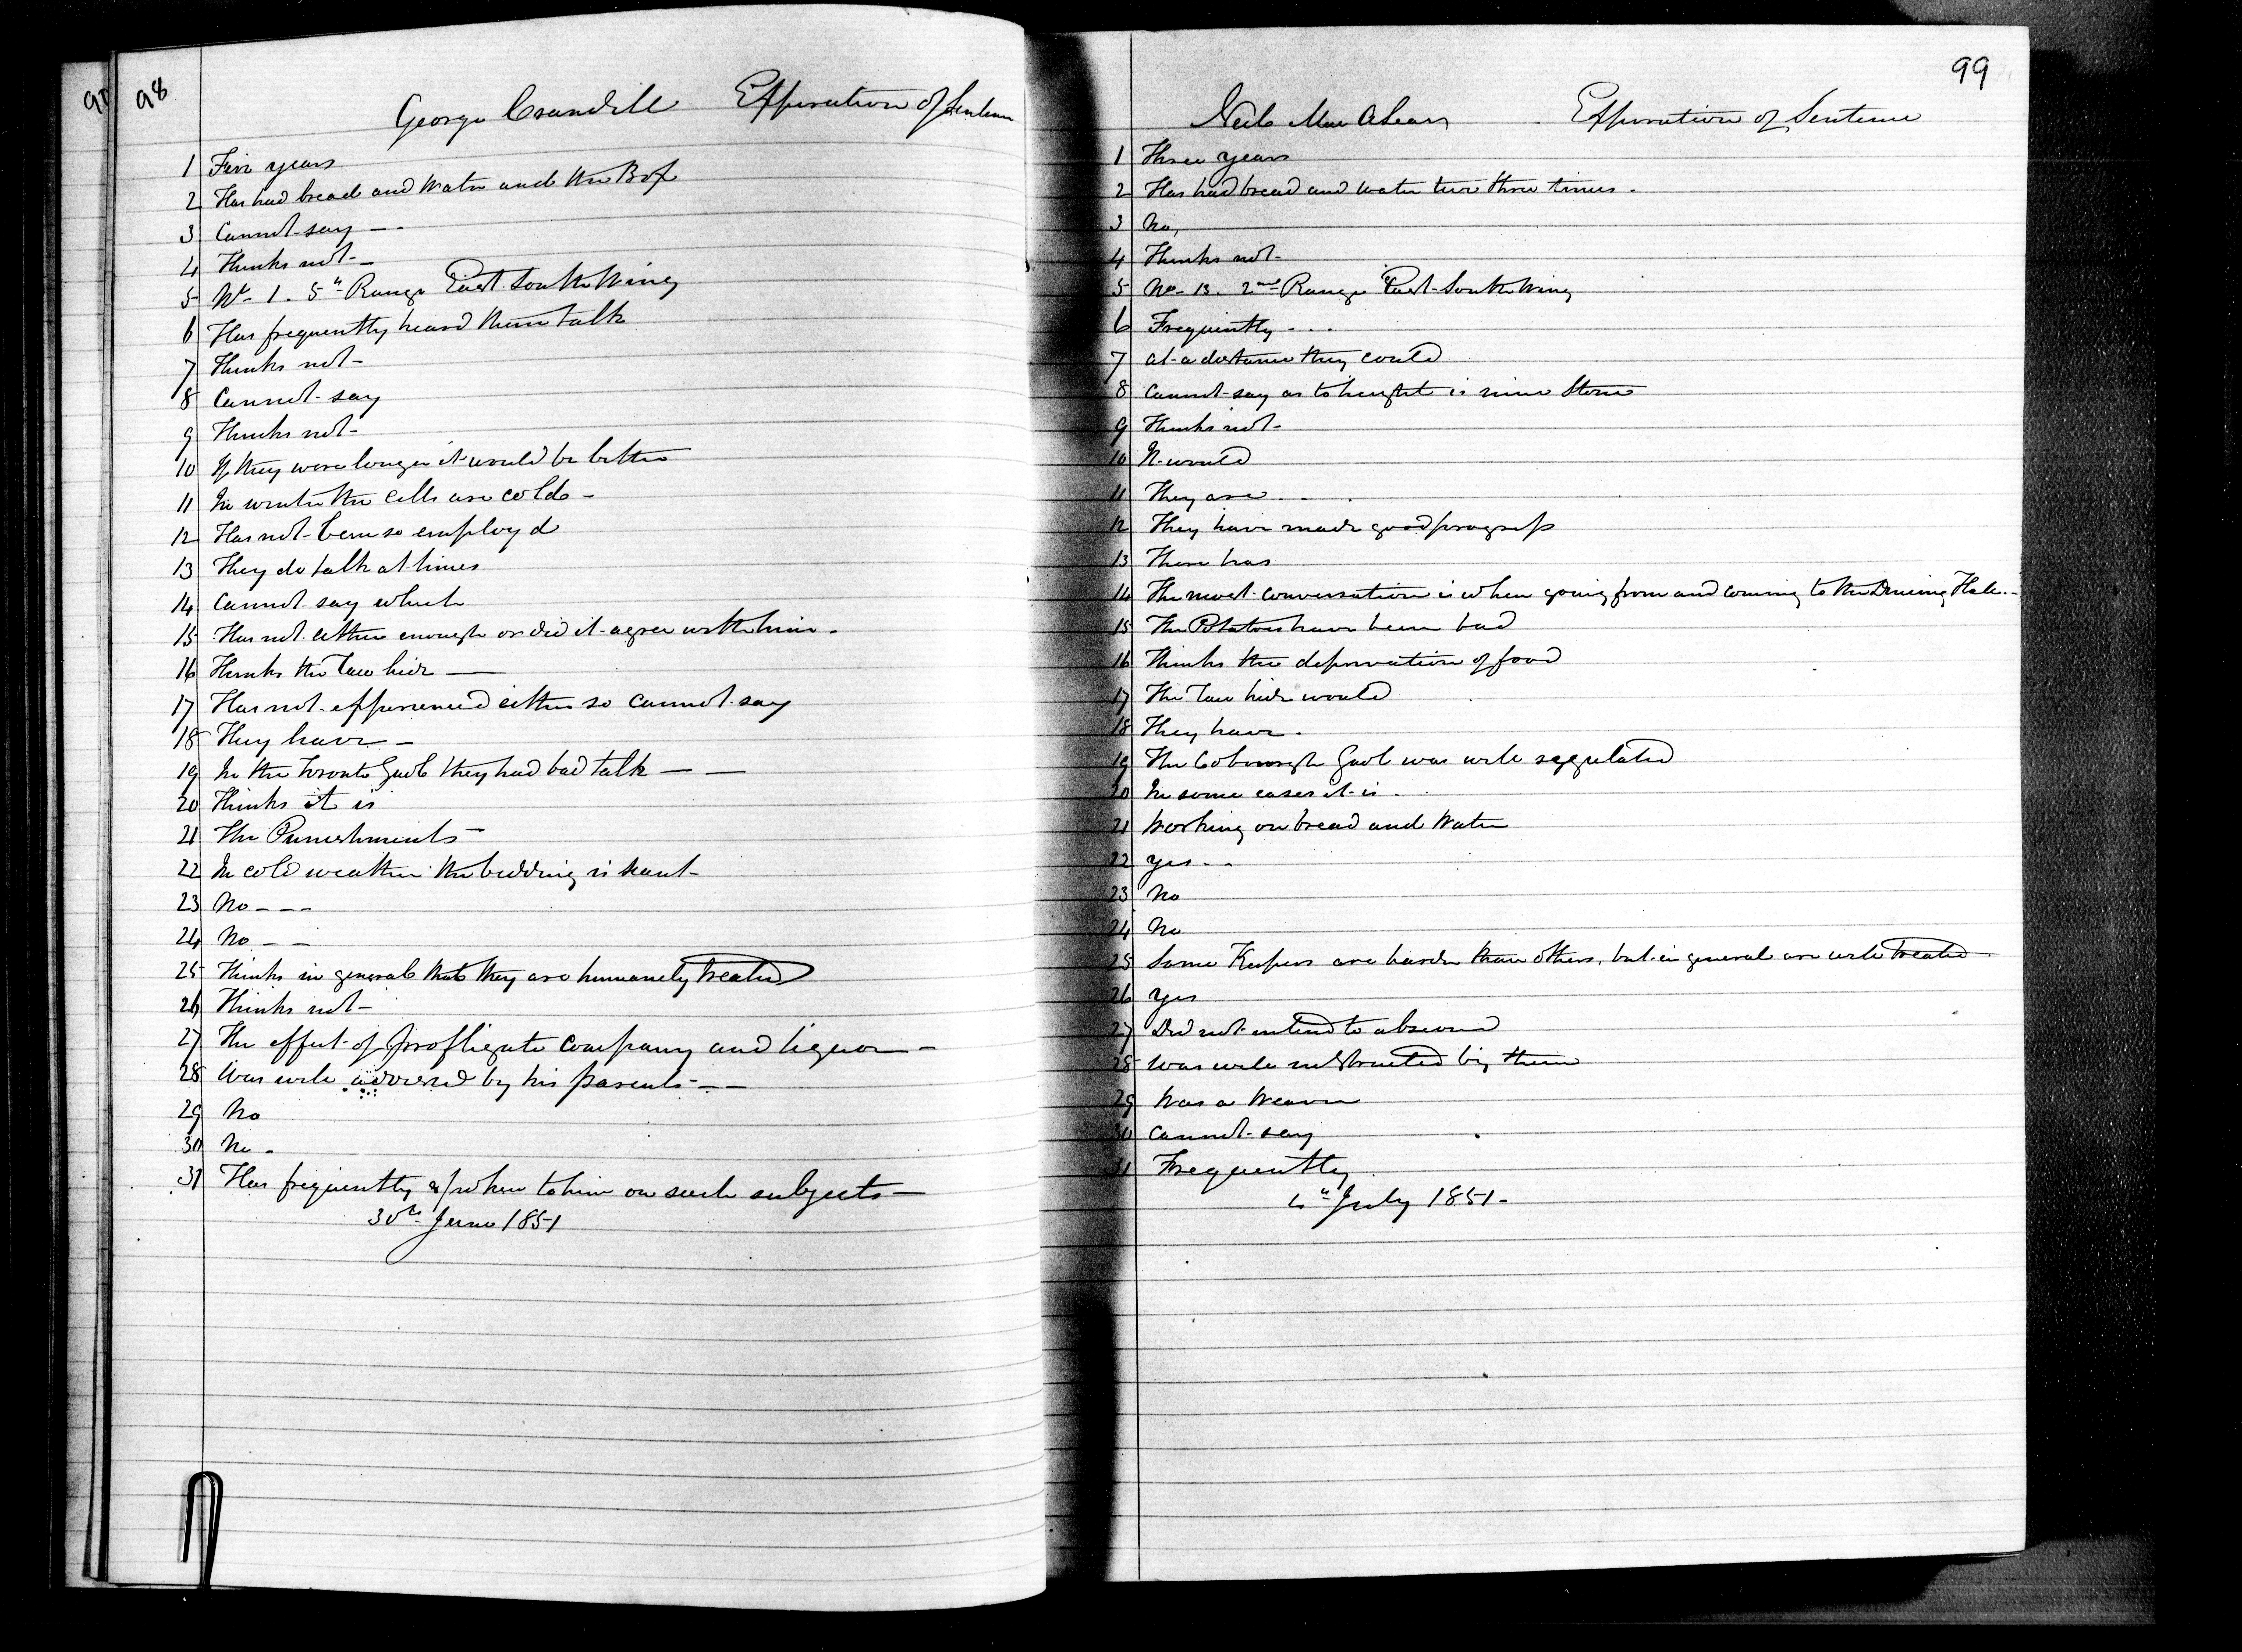 98
George Crandell Expiration of Sentence
1 Five years
2 Has had bread and water and the Box
3 Cannot say -
4 Thinks not -
5 No. 1. 5th Range East South Wing
6 Has frequently heard them talk
7 Thinks not -
8 Cannot say
9 Thinks not -
10 If they were longer it would be better
11 In winter the cells are cold -
12 Has not been so employd
13 They do talk at times
14 Cannot say which
15 Has not either enough or did it agree with him -
16 Thinks the Raw hide -
17 Has not experienced either so cannot say
18 They have -
19 In the Toronto Gaol they had bad talk - -
20 Thinks it is
21 The Punishments -
22 In cold weather the bedding is scant -
23 No - - -
24 No - -
25 Thinks in general that they are humanely treated
26 Thinks not -
27 The effect of profligate company and liquor -
28 Was well advised by his parents - -
29 No
30 No -
31 Has frequently spoken to him on such subjects -
30th June 1851
99
Neil Mac Expiration of Sentence
1 Three years
2 Has had bread and water two three times -
3 No,
4 Thinks not -
5 No. 13. 2nd Range East South Wing
6 Frequently - - -
7 at a distance they could
8 Cannot say as to height is nine Stone
9 Thinks not -
10 It would
11 They are - - -
12 They have made good progress
13 There has
14 The most conversation is when going from and coming to the Dining Hall -
15 The Potatoes have been bad
16 Thinks the deprivation of food
17 The Raw hide would
18 They have -
19 The Cobourgh Gaol was well regulated
20 In some cases it is -
21 Working on bread and Water
22 yes - -
23 No
24 No
25 Some Keepers are harder than others, but in general are well treated
26 Yes
27 Did not intend to abscond
28 was well instructed by them
29 Was a Weaver
30 Cannot say
31 Frequently
4th July 1851 -